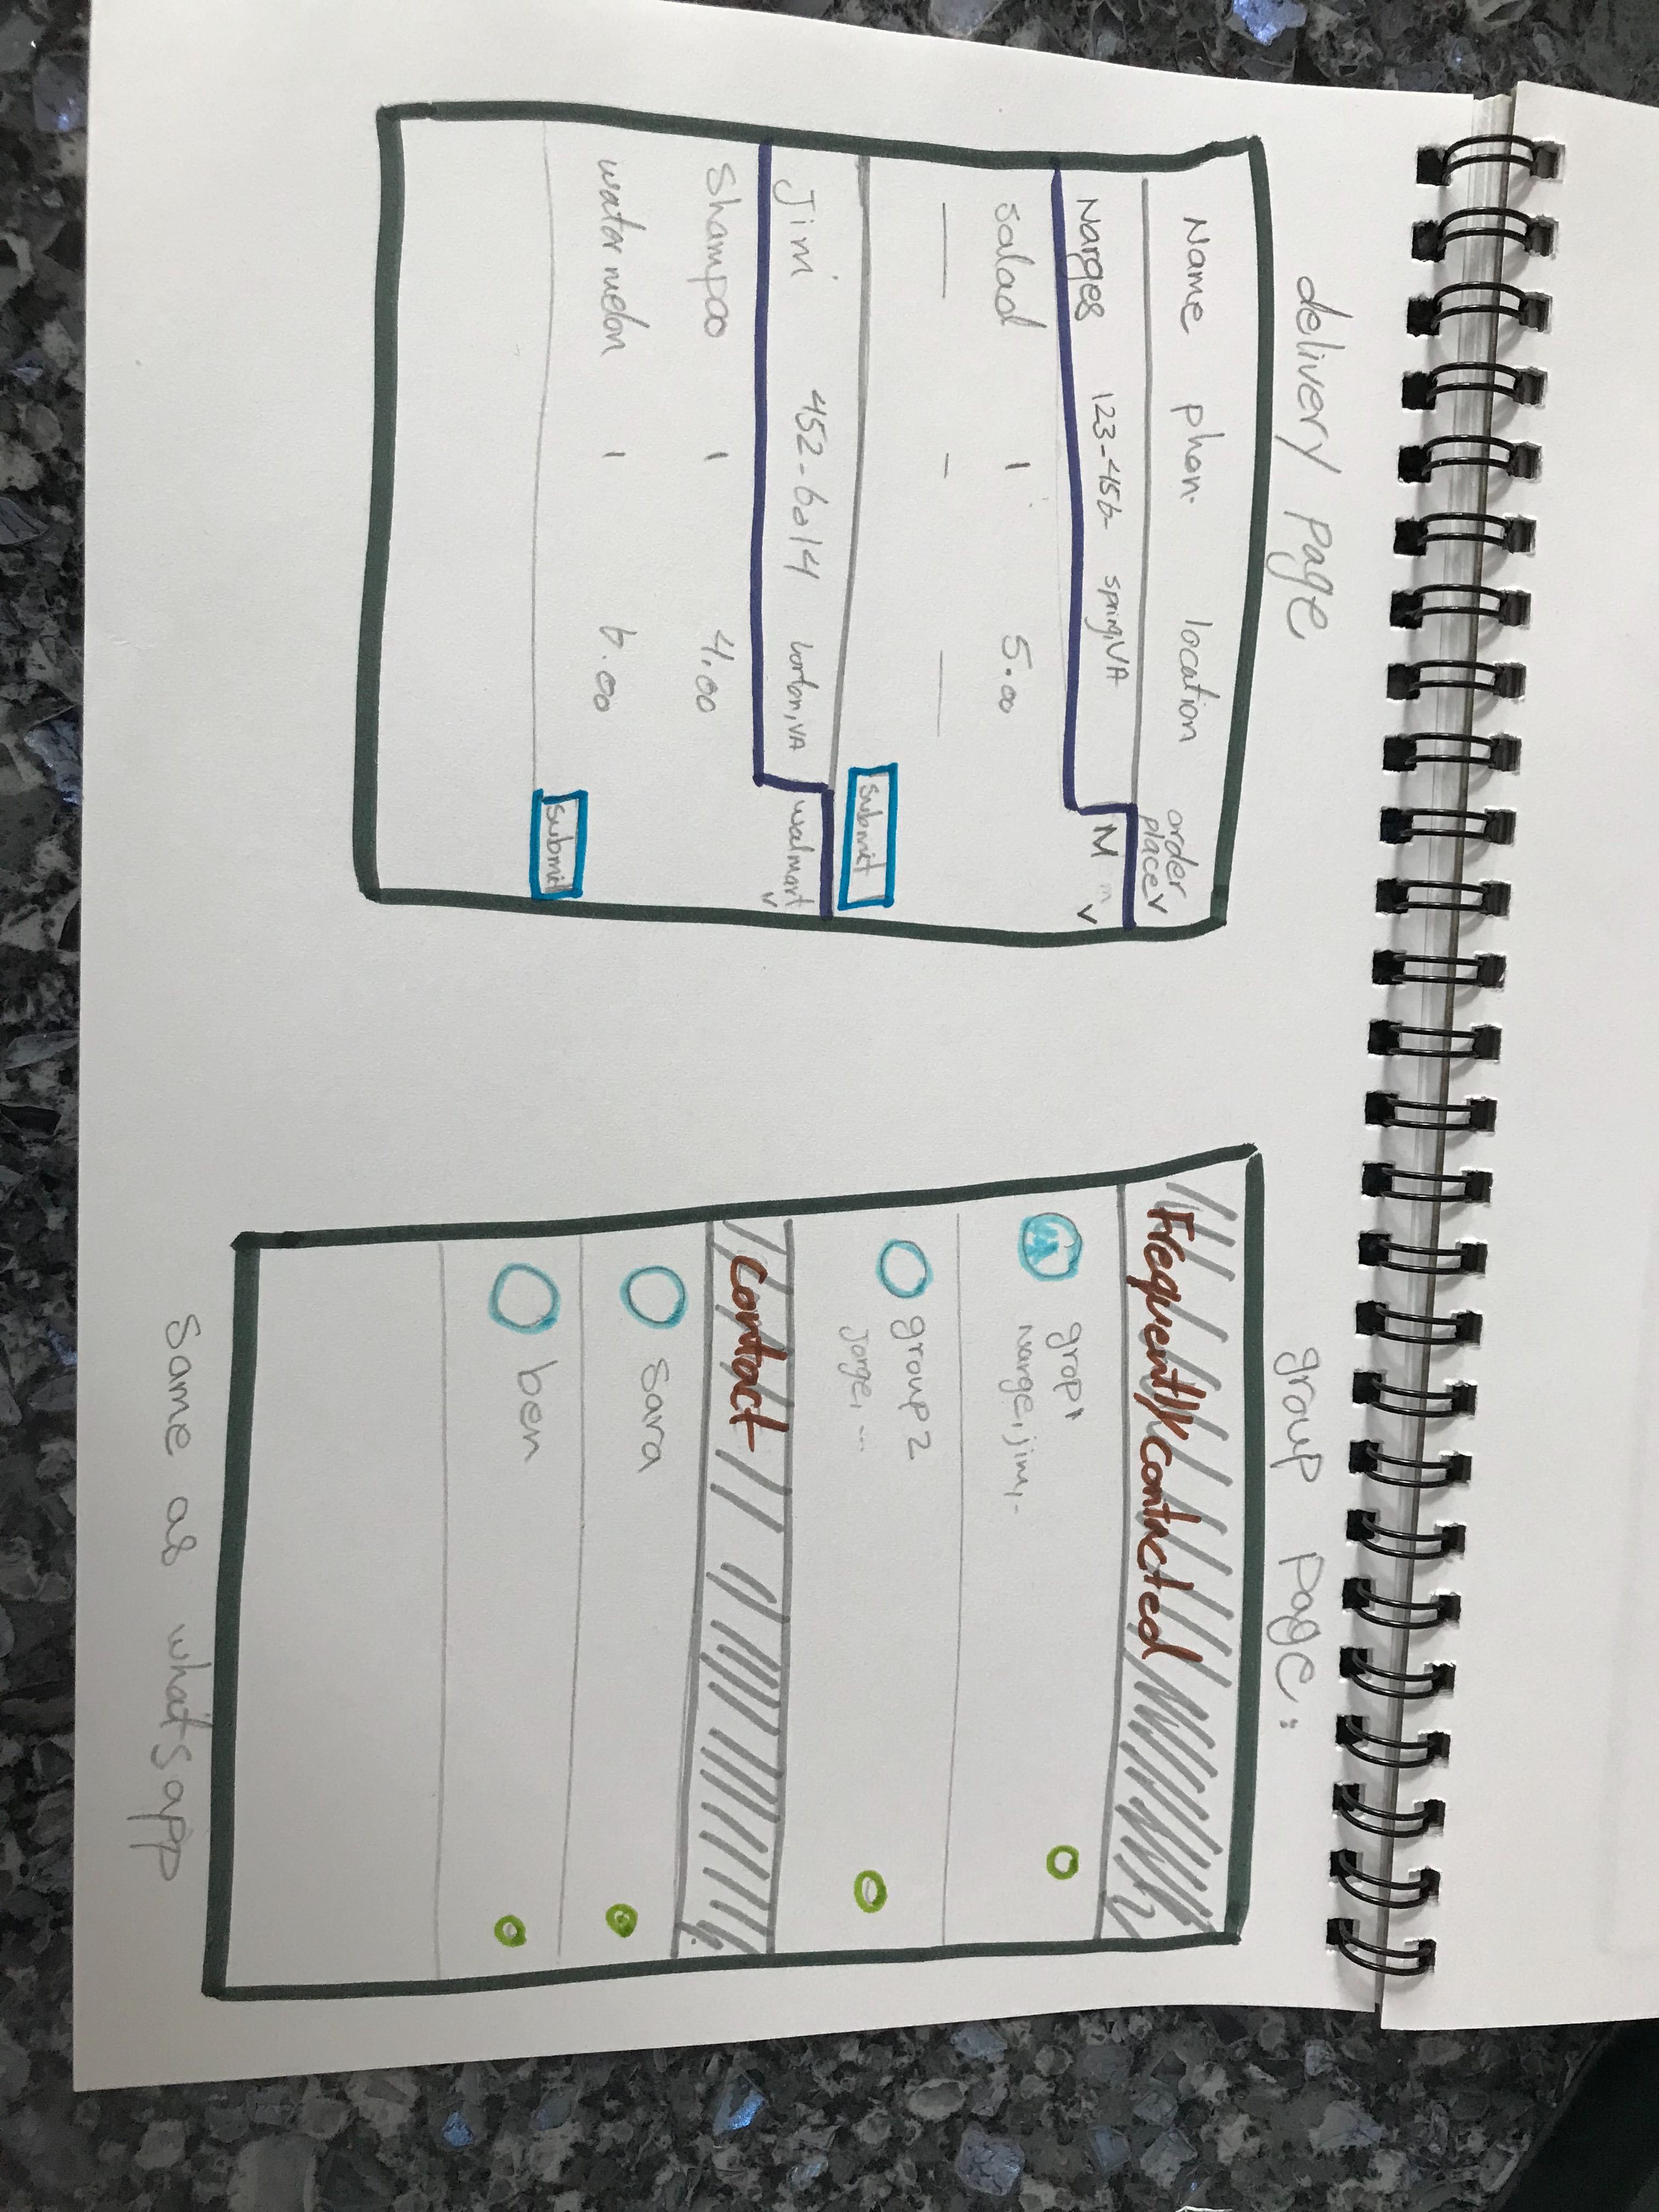 delivery page
Name phon. location order place v
Narges 123-456- spring,VA M v
salad 1 5.00
submit
Jim 452-6014 lorton,VA walmart v
Shampoo 1 4.00
water melon 1 6.00
submit
group page:
Frequently contacted
grop1
narges, jim, -
group2
Jorge, ...
Contact
sara
ben
same as whatsapp